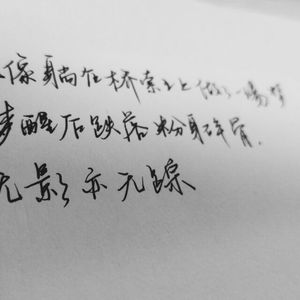 像躺在桥索上做了一场梦
梦醒后跌落粉身碎骨.
无影亦无踪